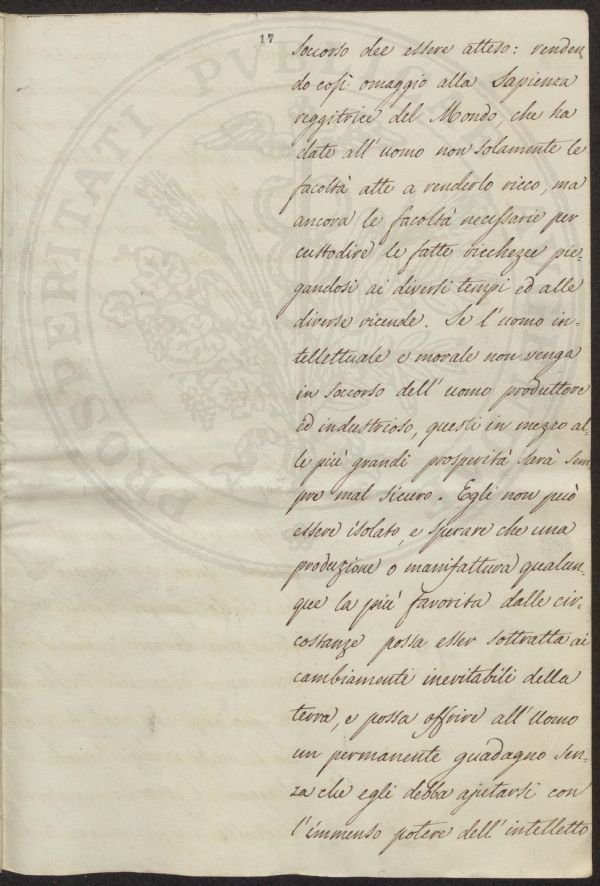 17
soccorso dee essere atteso: renden-
do così omaggio alla Sapienza
reggitrice del Mondo, che ha
date all'uomo non solamente le
facoltà atte a renderlo ricco, ma
ancora le facoltà necessarie per
custodire le fatte ricchezze pie-
gandosi ai diversi tempi ed alle
diverse vicende. Se l'uomo in-
tellettuale e morale non venga
in soccorso dell'uomo produttore
ed industrioso, questi in mezzo al-
le più grandi prosperità sarà sem
pre mal sicuro. Egli non può
essere isolato, e sperare che una
produzione o manifattura qualun-
que la più favorita dalle cir-
costanze possa esser sottratta ai
cambiamenti inevitabili della
terra, e possa offrire all'Uomo
un permanente guadagno sen-
za che egli debba ajutarsi con
l'immenso potere dell'intelletto
PROSPERITATI PUBL